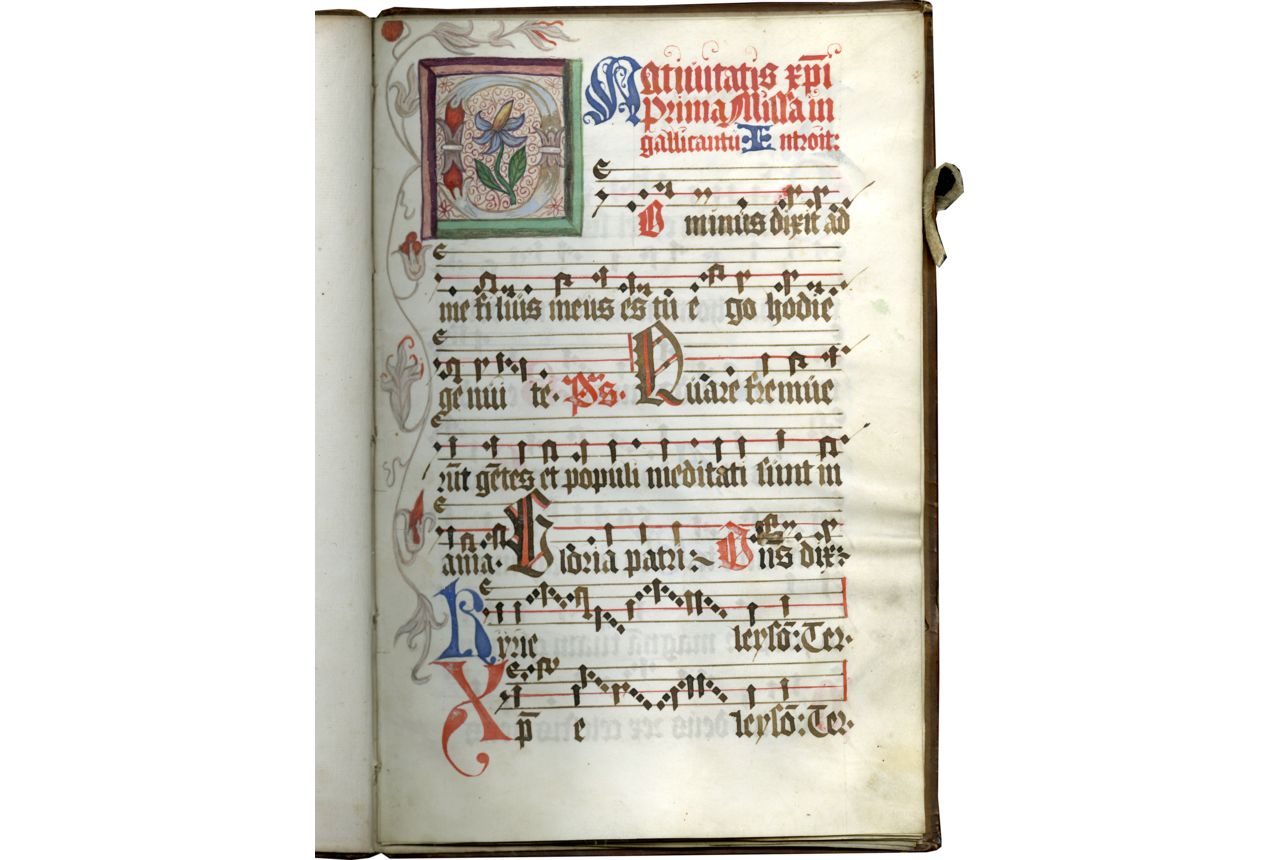 Natiuitatis xp̄i
Prima Missa in
gallicantu: Introit:
D O minus dixit ad
me filius meus es tu ego hodie
genui te. Ps. Quare fremue
rūt gētes et populi meditati sunt in
ania. Gloria patri: Dn̄s dix:
Kyrie leysō: Ter.
Xp̄e leysō: Ter.